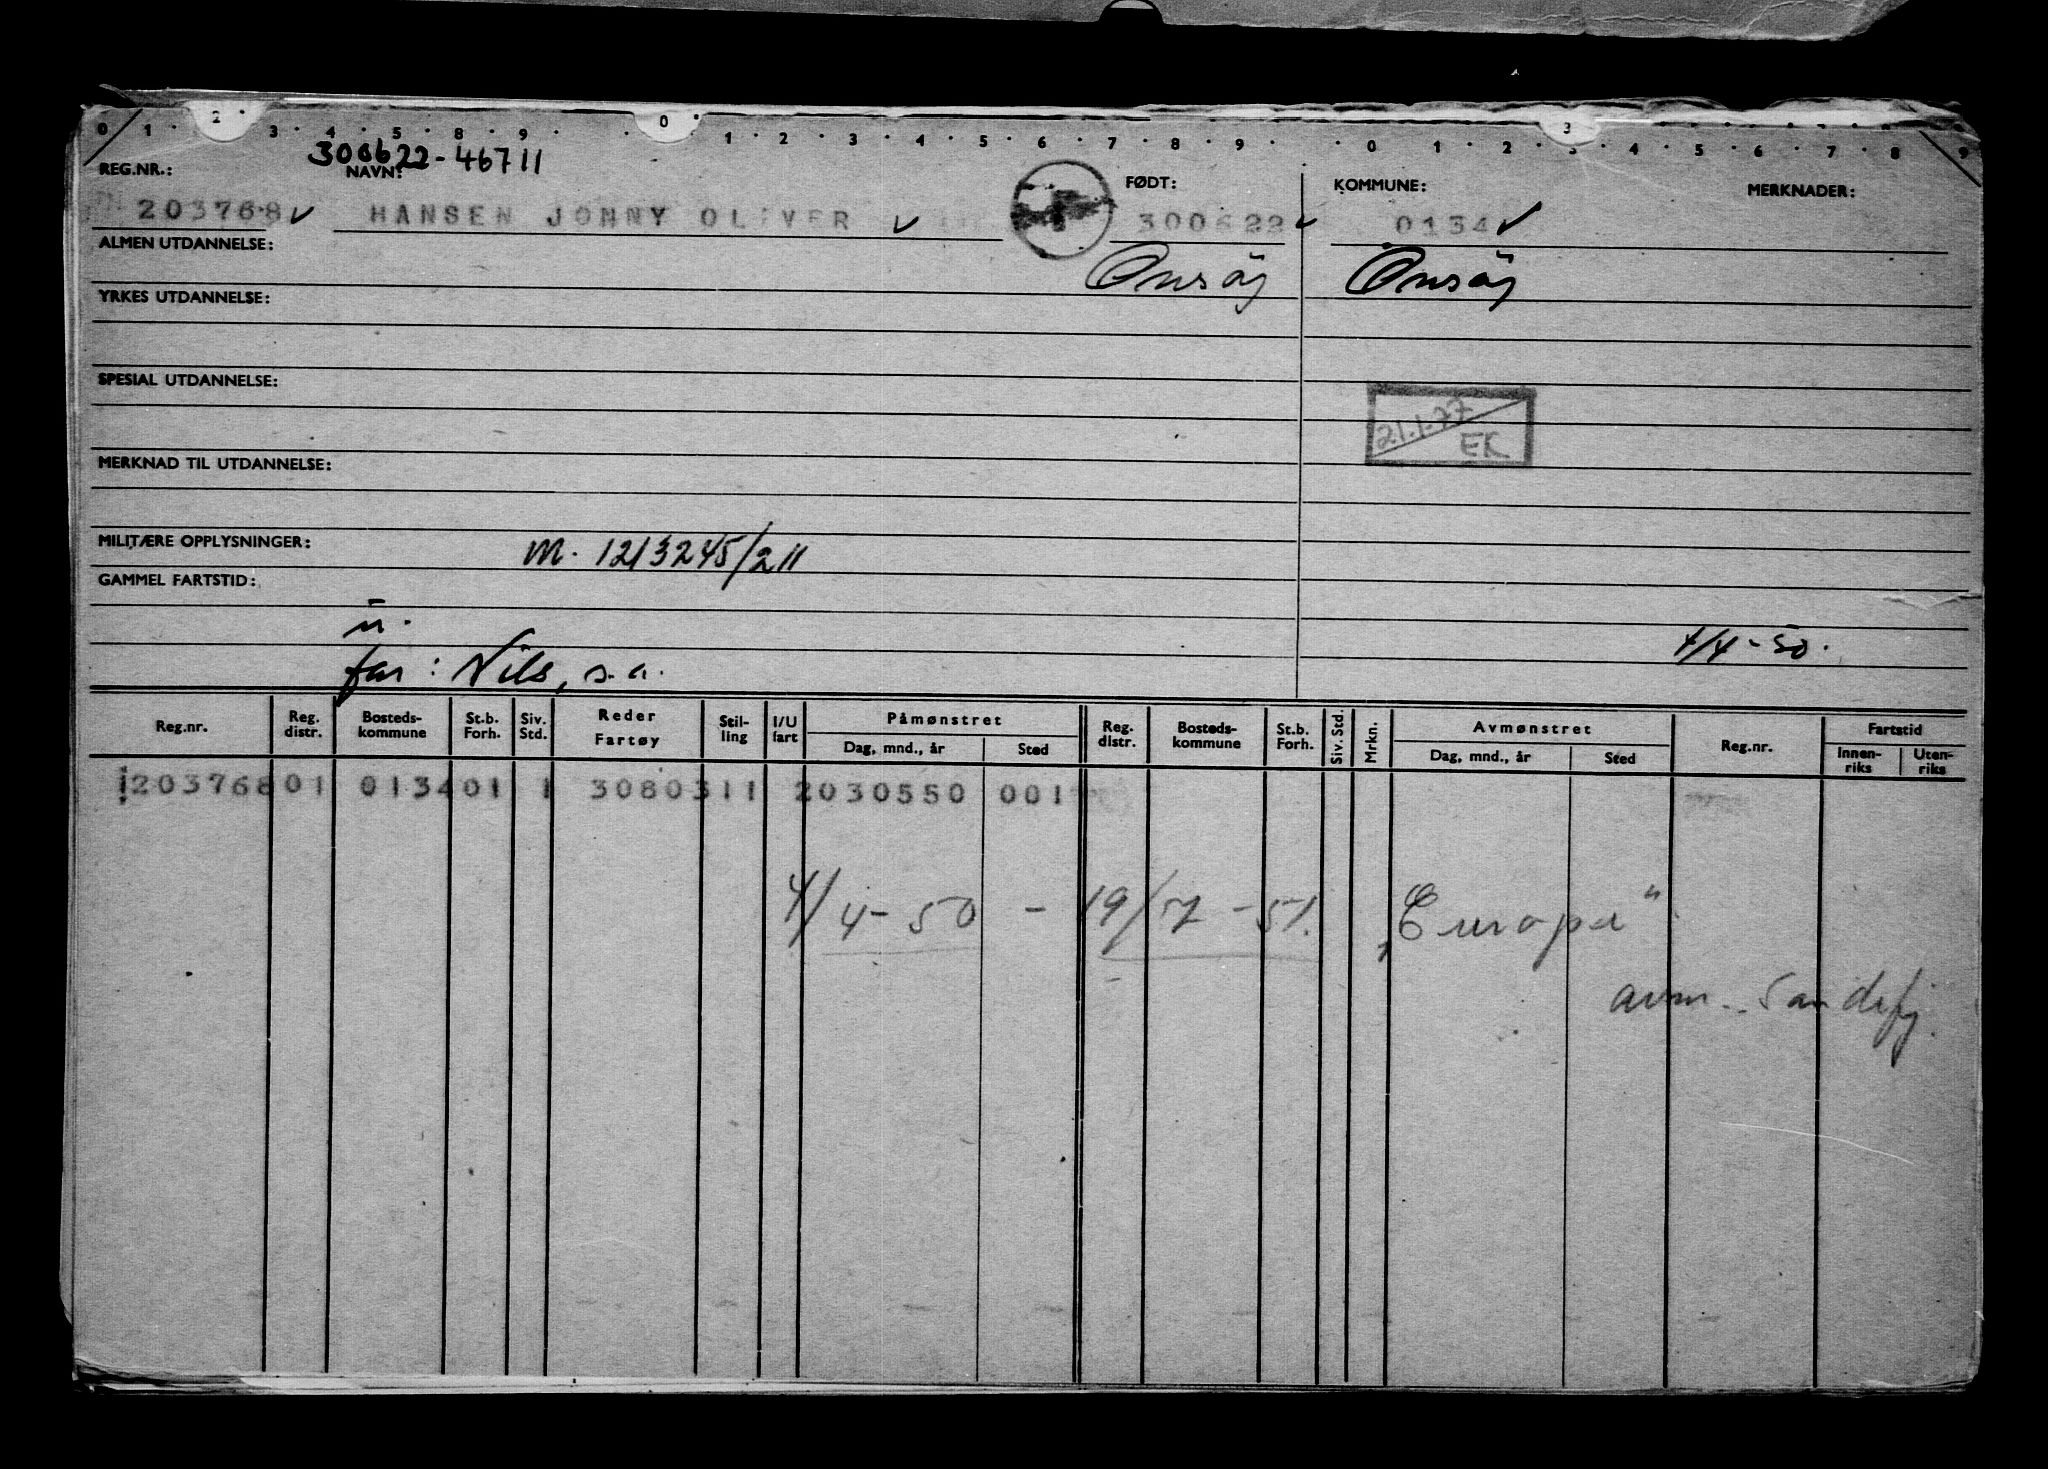 0 1 2 3 4 5 8 9 0 1 2 3 4 5 6 7 8 9 0 1 2 3 4 5 6 7 8 9
300622-46711
REG.NR.: NAVN: FØDT: KOMMUNE: MERKNADER:
203768 HANSEN JONNY OLIVER 300622 0134
ALMEN UTDANNELSE: Onsøy Onsøy
YRKES UTDANNELSE:
SPESIAL UTDANNELSE:
21.1.77
EK
MERKNAD TIL UTDANNELSE:
MILITÆRE OPPLYSNINGER: M. 1213245/211
GAMMEL FARTSTID:
4/4-50.
far: Nils, s.a.
Reg.nr. Reg. distr. Bosteds-kommune St.b. Forh. Siv. Std. Reder Fartøy Stil-ling I/U fart Påmønstret Dag, mnd., år Sted Reg. distr. Bosteds-kommune St.b. Forh. Siv. Std. Mrkn. Avmønstret Dag, mnd., år Sted Reg.nr. Fartstid Innen-riks Uten-riks
203768 01 0134 01 1 3080311 2030550 001
4/4-50 - 19/5 -51. „Europa"
avm. Sandefj.